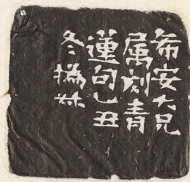 希安大兄
属刻青
蓮句乙丑
冬撝叔